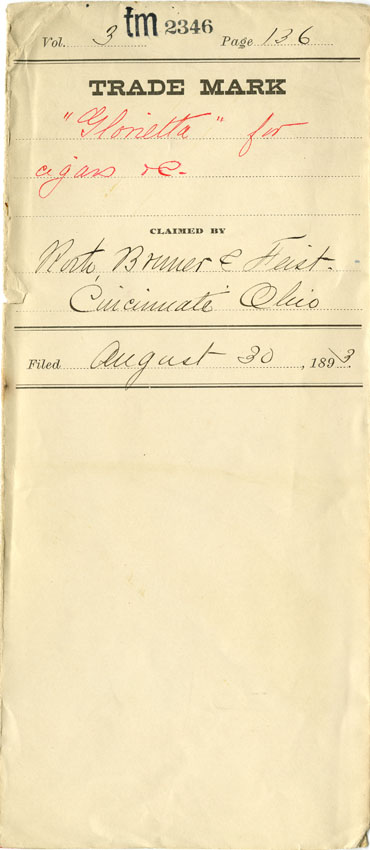 tm 2346
Vol. 3 Page 136
TRADE MARK
"Glorietta" for
cigars &c-
CLAIMED BY
Bruner & Feist.
Cincinnati Ohio
Filed August 30, 1893.